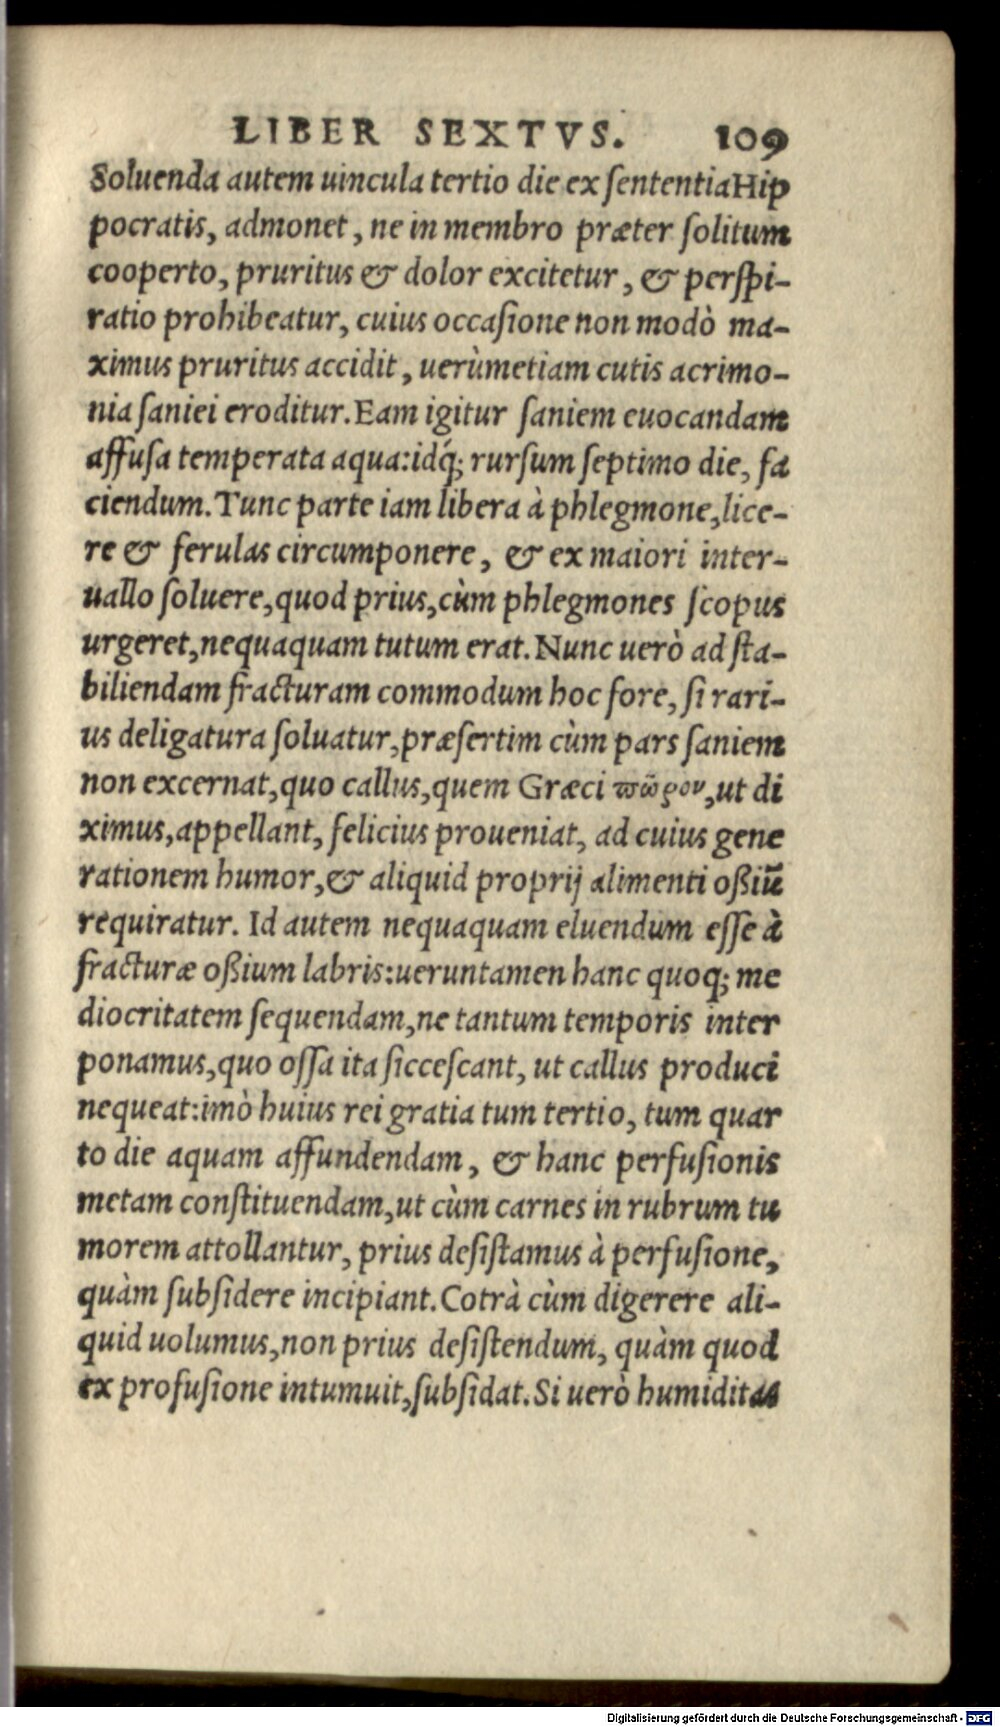 LIBER SEXTVS. 109
Soluenda autem uincula tertio die ex ſententia Hip
pocratis, admonet, ne in membro præter ſolitum
cooperto, pruritus & dolor excitetur, & perſpi-
ratio prohibeatur, cuius occaſione non modò ma-
ximus pruritus accidit, uerùmetiam cutis acrimo-
nia ſaniei eroditur. Eam igitur ſaniem euocandam
affuſa temperata aqua: idq́; rurſum ſeptimo die, fa
ciendum. Tunc parte iam libera à phlegmone, lice-
re & ferulas circumponere, & ex maiori inter-
uallo ſoluere, quod prius, cùm phlegmones ſcopus
urgeret, nequaquam tutum erat. Nunc uerò ad ſta-
biliendam fracturam commodum hoc fore, ſi rari-
us deligatura ſoluatur, præſertim cùm pars ſaniem
non excernat, quo callus, quem Græci πῶρον, ut di
ximus, appellant, felicius proueniat, ad cuius gene
rationem humor, & aliquid proprij alimenti oßiū
requiratur. Id autem nequaquam eluendum eſſe à
fracturæ oßium labris: ueruntamen hanc quoq; me
diocritatem ſequendam, ne tantum temporis inter
ponamus, quo oſſa ita ſicceſcant, ut callus produci
nequeat: imò huius rei gratia tum tertio, tum quar
to die aquam affundendam, & hanc perfuſionis
metam conſtituendam, ut cùm carnes in rubrum tu
morem attollantur, prius deſiſtamus à perfuſione,
quàm ſubſidere incipiant. Cotrà cùm digerere ali-
quid uolumus, non prius deſiſtendum, quàm quod
ex profuſione intumuit, ſubſidat. Si uerò humiditas
Digitalisierung gefördert durch die Deutsche Forschungsgemeinschaft - DFG